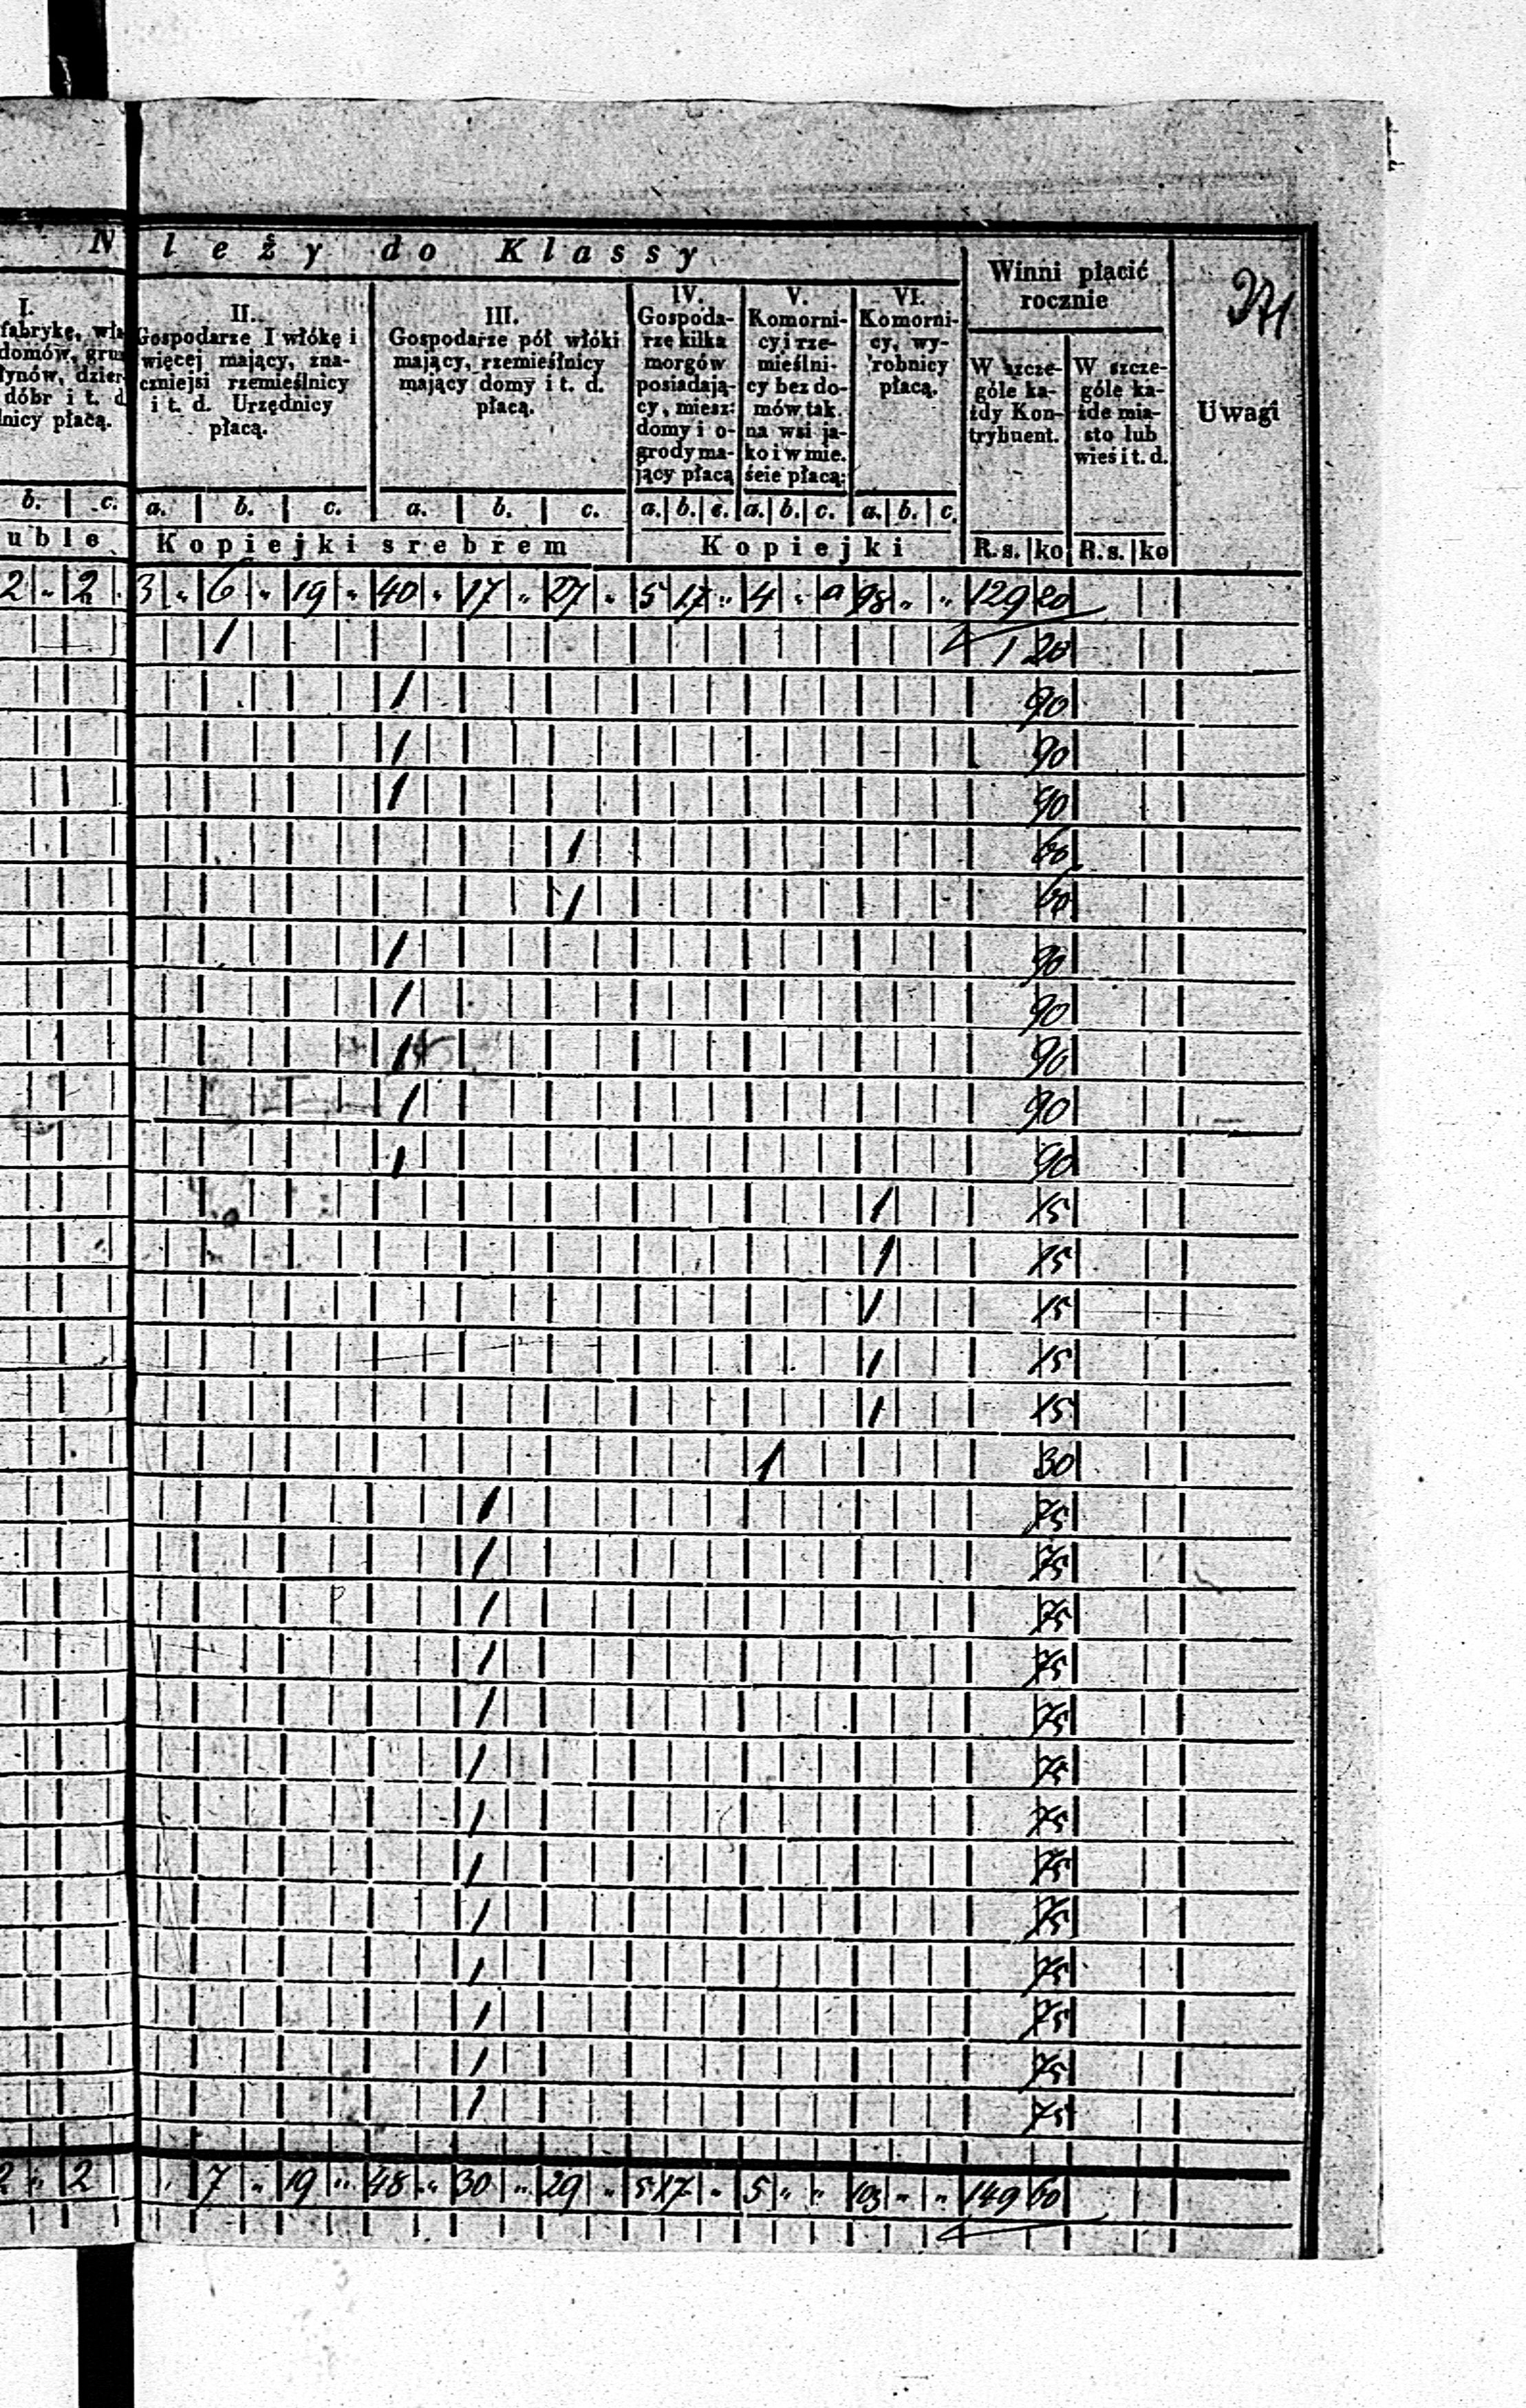 N
leży do Klassy
Winni płacić
rocznie
Uwagi
I.
fabrykę, wła
domów, grun
łynów, dzier-
dóbr i t. d
lnicy płacą.
II.
Gospodarze I włókę i
więcej mający, zna-
czniejsi rzemieślnicy
i t. d. Urzędnicy
płacą.
III.
Gospodarze pół włóki
mający, rzemieślnicy
mający domy i t. d.
płacą.
IV.
Gospoda-
rze kilka
morgów
posiadają-
cy, miesz:
domy i o-
grody ma-
jący płacą
V.
Komorni-
cy i rze-
mieślni-
cy bez do-
mów, tak
na wsi ja-
ko i w mie.
ście płacą:
VI.
Komorni-
cy, wy-
robnicy
płacą.
W szcze-
góle ka-
żdy Kon-
trybuent.
W szcze-
góle ka-
żde mia-
sto lub
wieś i t. d.
b. c. a. b. c. a. b. c. a. b. c. a. b. c. a. b. c.
uble Kopiejki srebrem Kopiejki R.s. ko R.s. ko
2 " 2 " 3 " 6 " 19 " 40 " 17 " 27 " 5 17 " 4 " " 98 " " 129 20
1 1 20
1 90
1 90
1 90
1 60
1 60
1 90
1 90
1 90
1 90
1 90
1 15
1 15
1 15
1 15
1 15
1 30
1 75
1 75
1 75
1 75
1 75
1 75
1 75
1 75
1 75
1 75
1 75
1 75
1 75
2 " 2 " 7 " 19 " 48 " 30 " 29 " 5 17 " 5 " " 103 " " 149 60